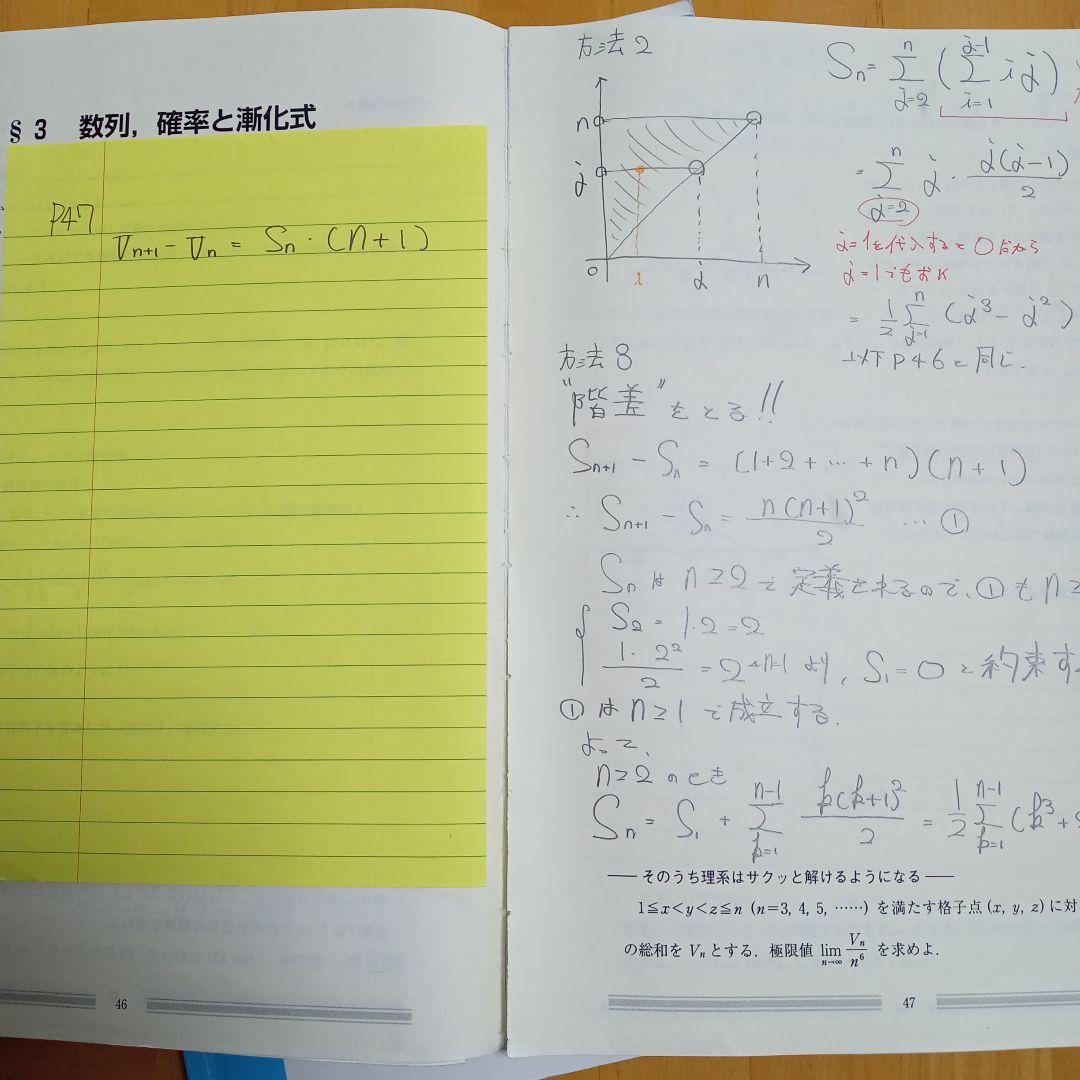 §3 数列，確率と漸化式
P47
V_{n+1} - V_n = S_n · (n+1)
46
方法2
n
j
o
i
j
n
S_n = Σ_{j=2}^{n} ( Σ_{i=1}^{j-1} i j )
= Σ_{j=2}^{n} j · j(j-1)/2
j=1を代入すると0だから
j=1でもOK
= 1/2 Σ_{j=1}^{n} (j³ - j²)
以下P46と同じ.
方法3
"階差"をとる!!
S_{n+1} - S_n = (1+2+…+n)(n+1)
∴ S_{n+1} - S_n = n(n+1)²/2 … ①
S_nはn≥2で定義されるので、①もn≥
S_2 = 1·2 = 2
1·2²/2 = 2 ←n=1 より, S_1=0と約束す
①はn≥1で成立する.
よって,
n≥2のとき
S_n = S_1 + Σ_{k=1}^{n-1} k(k+1)²/2 = 1/2 Σ_{k=1}^{n-1} (k³+
そのうち理系はサクッと解けるようになる
1≦x<y<z≦n (n=3, 4, 5, ……) を満たす格子点 (x, y, z) に対
の総和を V_n とする．極限値 lim_{n→∞} V_n/n⁶ を求めよ．
47